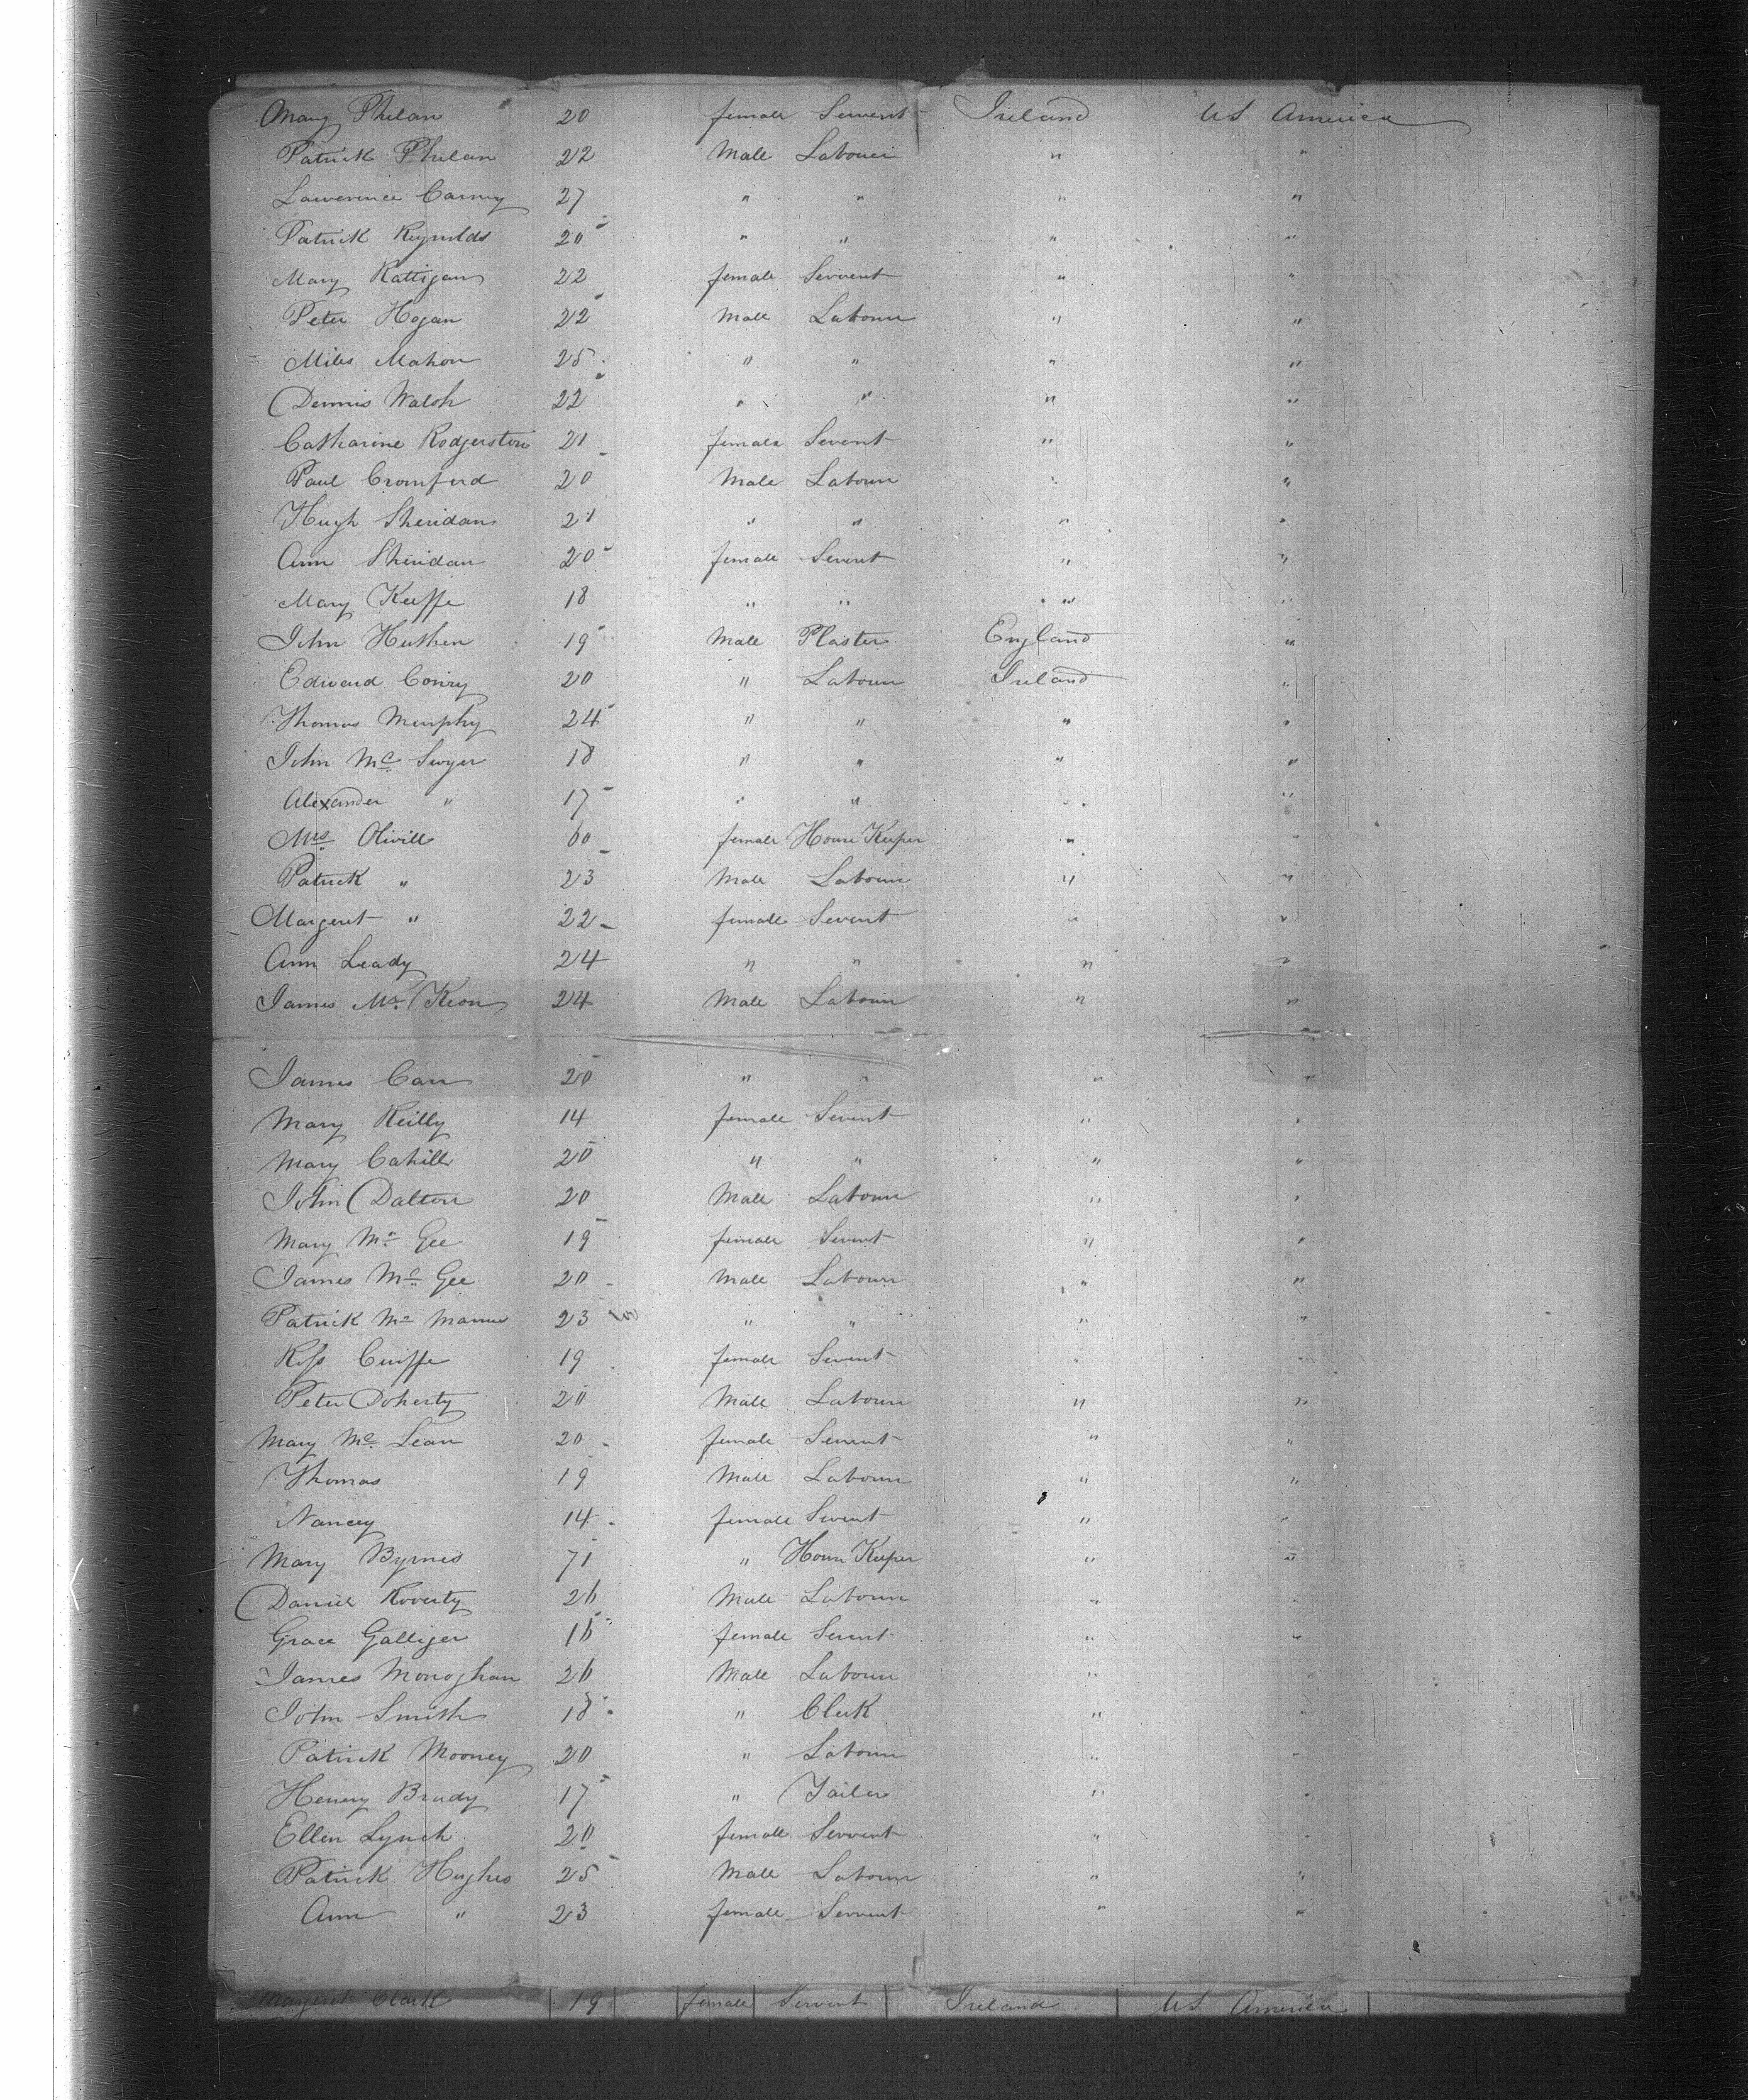 Mary Phelan 20 female Servent Ireland US America
Patrick Phelan 22 Male Labourer " "
Lawerence Carney 27 " " " "
Patrick Reynolds 20 " " " "
Mary Rattigan 22 female Servent " "
Peter Hogan 22 Male Labourer " "
Miles Mahon 25 " " " "
Dennis Walsh 22 " " " "
Catharine Rodgerston 21 female Servent " "
Paul Cromford 20 Male Labourer " "
Hugh Sheridan 21 " " " "
Ann Sheridan 20 female Servent " "
Mary Keeffe 18 " " " "
John 19 Male Plaster England "
Edward Conry 20 " Labourer Ireland "
Thomas Murphy 24 " " " "
John Mc Swyer 18 " " " "
Alexander " 17 " " " "
Mrs Olivill 60 female House Keeper " "
Patrick " 23 Male Labourer " "
Margeret " 22 female Servent " "
Ann Leady 24 " " " "
James Mc Keon 24 Male Labourer " "
James Carr 20 " " " "
Mary Reilly 14 female Servent " "
Mary Cahill 20 " " " "
John Dalton 20 Male Labourer " "
Mary Mc Gee 19 female Servent " "
James Mc Gee 20 Male Labourer " "
Patrick Mc Manus 23 " " " "
Ross 19 female Servent " "
Peter Doherty 20 Male Labourer " "
Mary Mc Lean 20 female Servent " "
Thomas 19 Male Labourer " "
Nancey 14 female Servent " "
Mary Byrnes 71 " House Keeper " "
Daniel Roverty 26 Male Labourer " "
Grace Galliger 16 female Servent " "
James Monoghan 26 Male Labourer " "
John Smith 18 " Clerk " "
Patrick Mooney 20 " Labourer " "
Henery Brady 17 " Tailer " "
Ellen Lynch 20 female Servent " "
Patrick Hughes 25 Male Labourer " "
Ann " 23 female Servent " "
Margeret Clark 19 female Servent Ireland US America